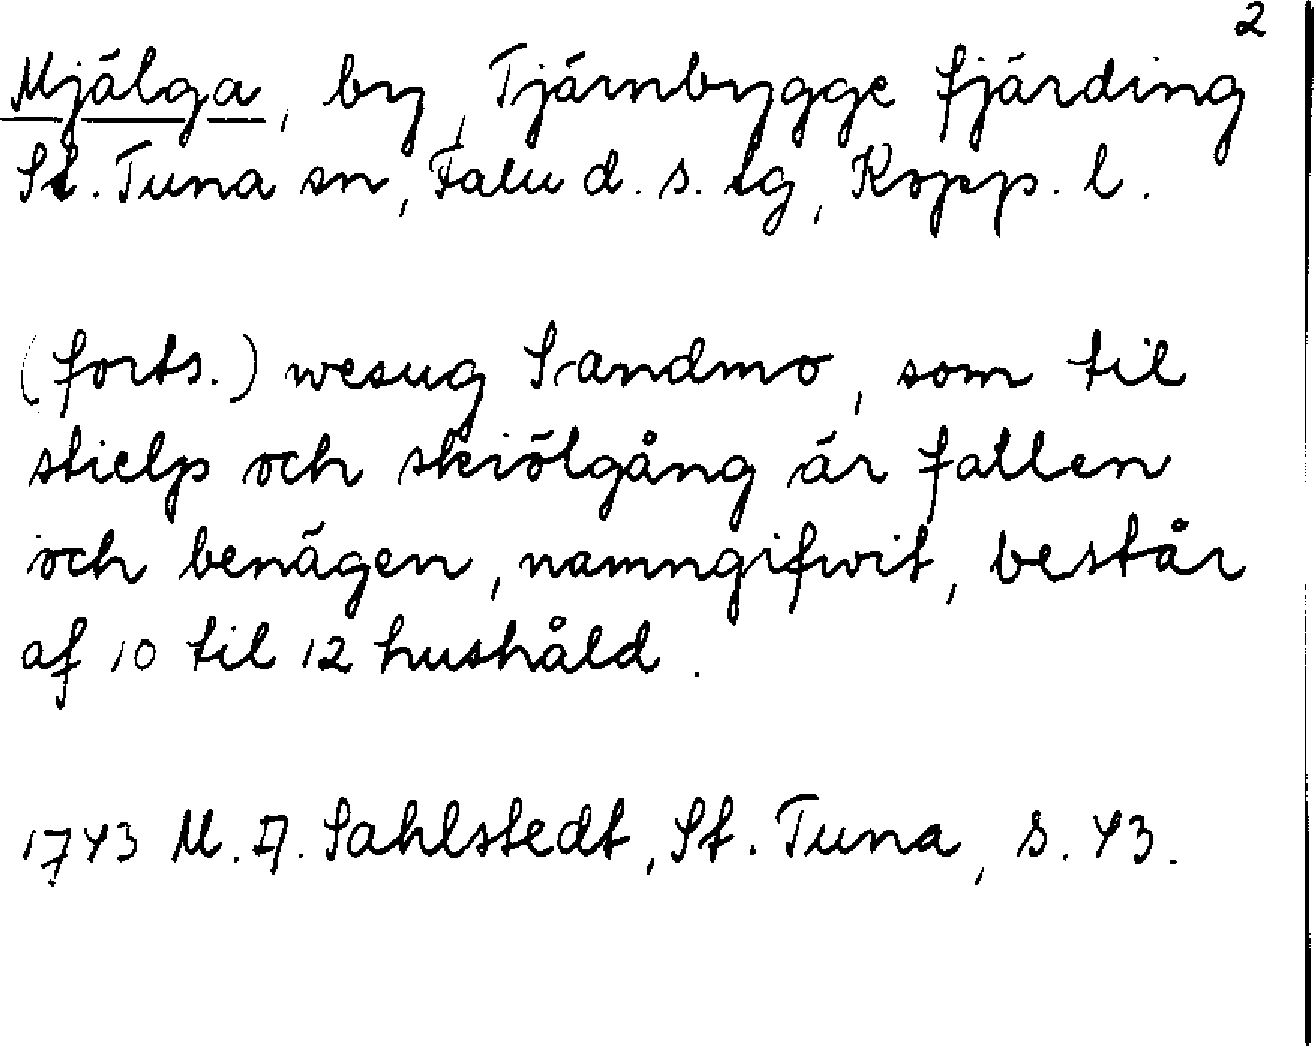 2
Mjälga, by, Tjärnbygge fjärding
St. Tuna sn, Falu d. s. lg, Kopp. l.
(forts.) wesug Sandmo, som til
stielp och skiölgång är fallen
och benägen, namngifwit, består
af 10 til 12 hushåld.
1743 M. A. Sahlstedt, St. Tuna, s. 43.